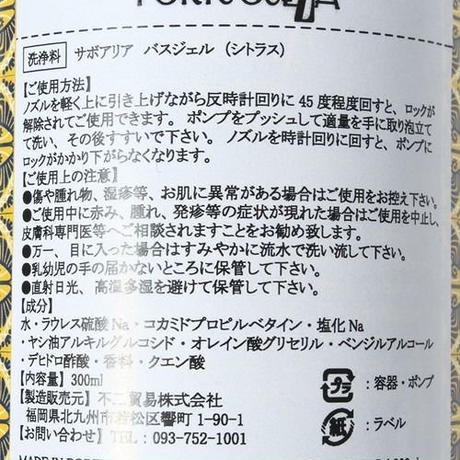 洗浄料 サボアリア バスジェル（シトラス）
【ご使用方法】
ノズルを軽く上に引き上げながら反時計回りに 45 度程度回すと、ロックが
解除されてご使用できます。 ポンプをプッシュして適量を手に取り泡立て
て洗い、その後すすいで下さい。 ノズルを時計回りに回すと、ポンプに
ロックがかかり下がらなくなります。
【ご使用上の注意】
●傷や腫れ物、湿疹等、お肌に異常がある場合はご使用をお控え下さい。
●ご使用中に赤み、腫れ、発疹等の症状が現れた場合はご使用を中止し、
皮膚科専門医等へご相談されますことをお勧め致します。
●万一、目に入った場合はすみやかに流水で洗い流して下さい。
●乳幼児の手の届かないところに保管して下さい。
●直射日光、高温多湿を避けて保管して下さい。
【成分】
水・ラウレス硫酸 Na・コカミドプロピルベタイン・塩化 Na
・ヤシ油アルキルグルコシド・オレイン酸グリセリル・ベンジルアルコール
・デヒドロ酢酸・香料・クエン酸
【内容量】 300ml
【製造販売元】 不二貿易株式会社
福岡県北九州市若松区響町 1-90-1
【お問い合わせ】 TEL：093-752-1001
プラ：容器・ポンプ
紙：ラベル